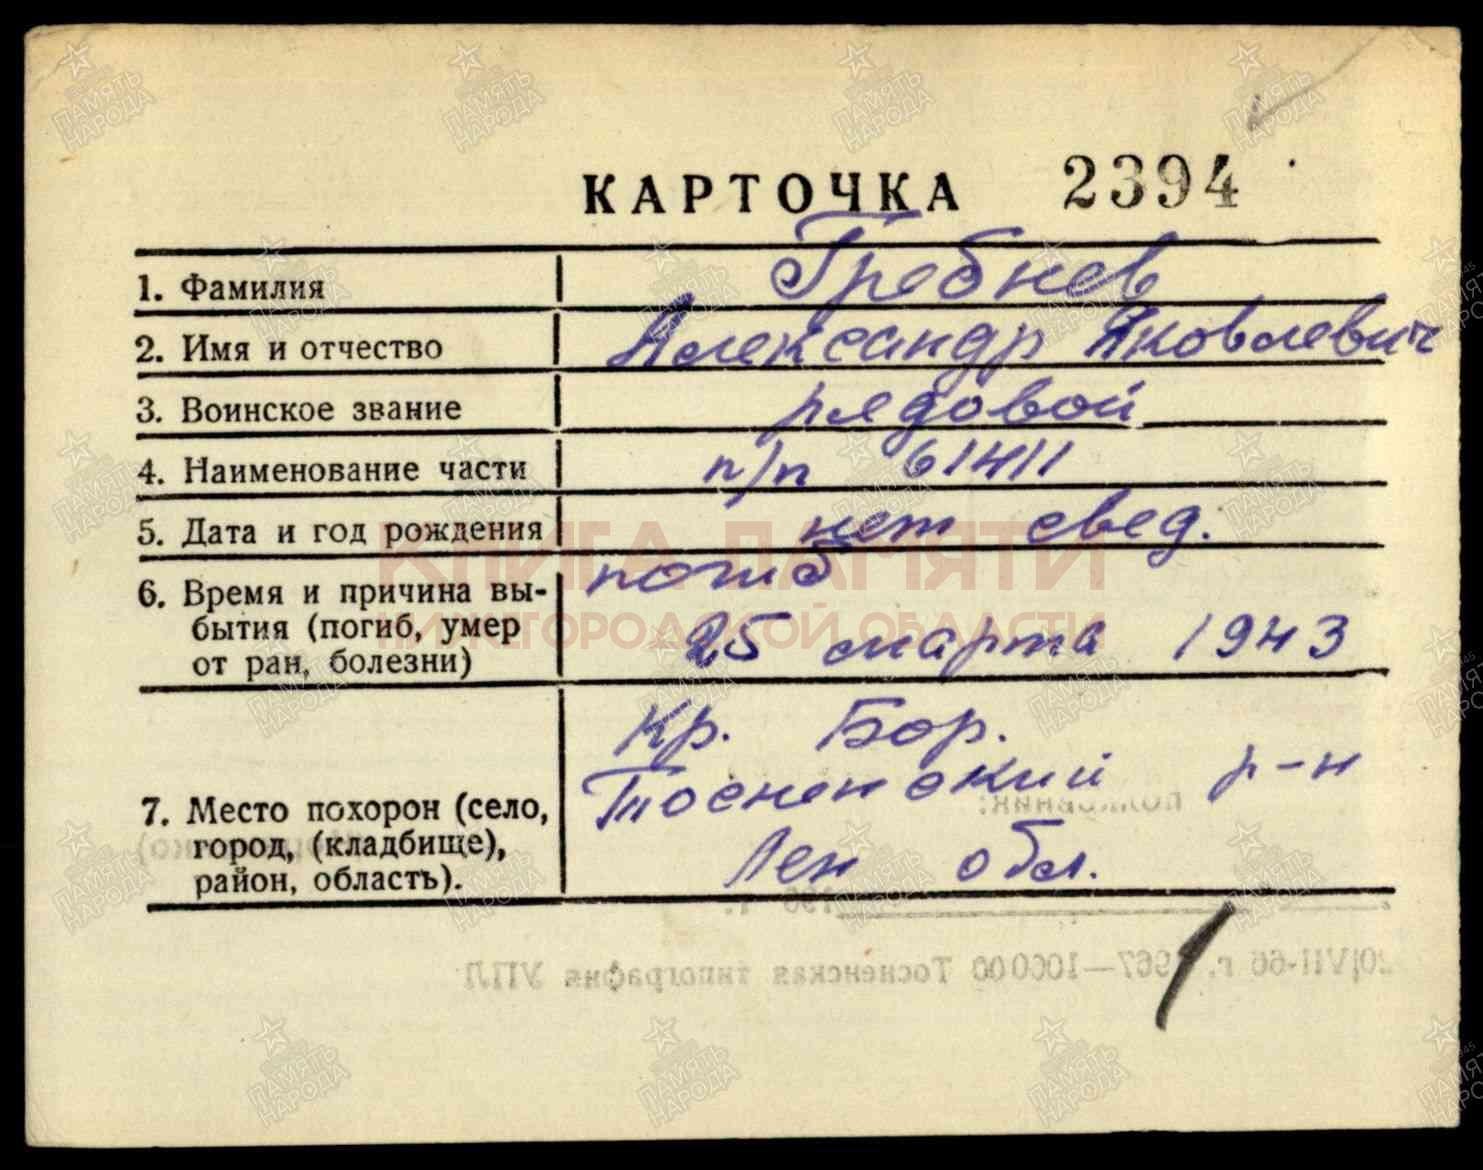 КАРТОЧКА 2394
1. Фамилия Гребнев
2. Имя и отчество Александр Яковлевич
3. Воинское звание рядовой
4. Наименование части п/п 61411
5. Дата и год рождения нет свед.
6. Время и причина вы- погиб
бытия (погиб, умер 25 марта 1943
от ран, болезни)
Кр. Бор.
Тосненский р-н
7. Место похорон (село,
город, (кладбище), Лен обл.
район, область).
КНИГА ПАМЯТИ
НИЖЕГОРОДСКОЙ ОБЛАСТИ
196 г.
20/VII-66 г. 967—100000 Тосненская типография УПЛ
ПАМЯТЬ НАРОДА